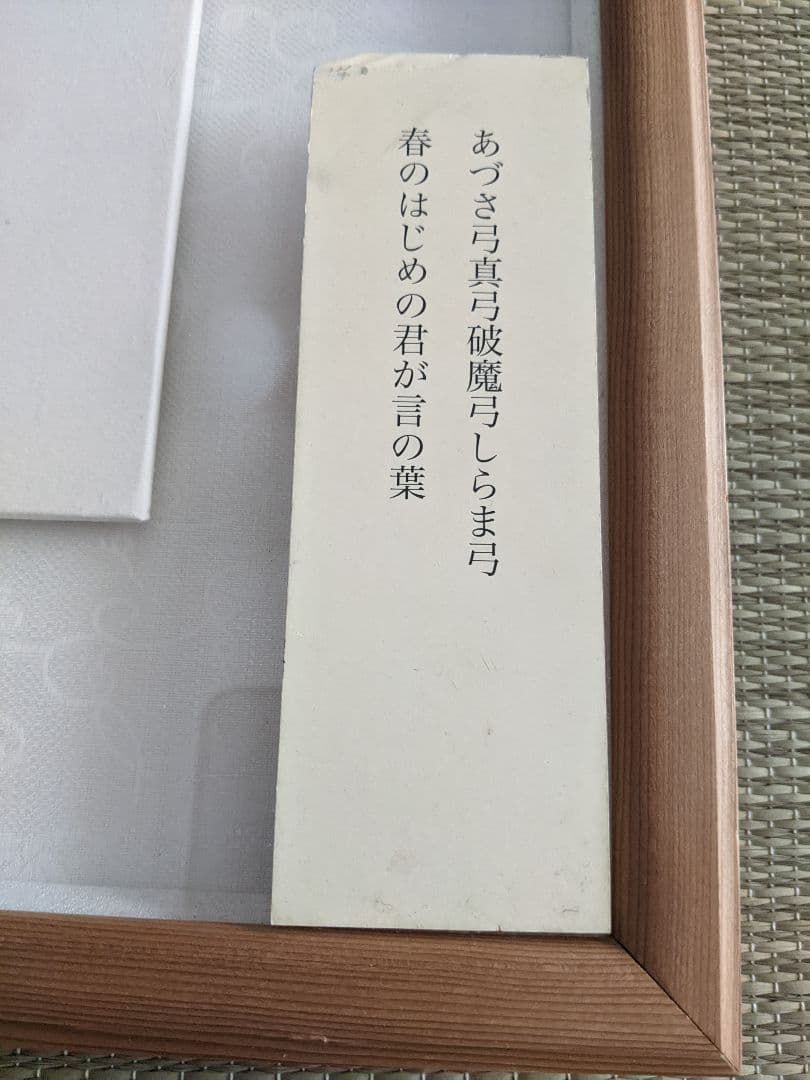 あづさ弓真弓破魔弓しらま弓
春のはじめの君が言の葉